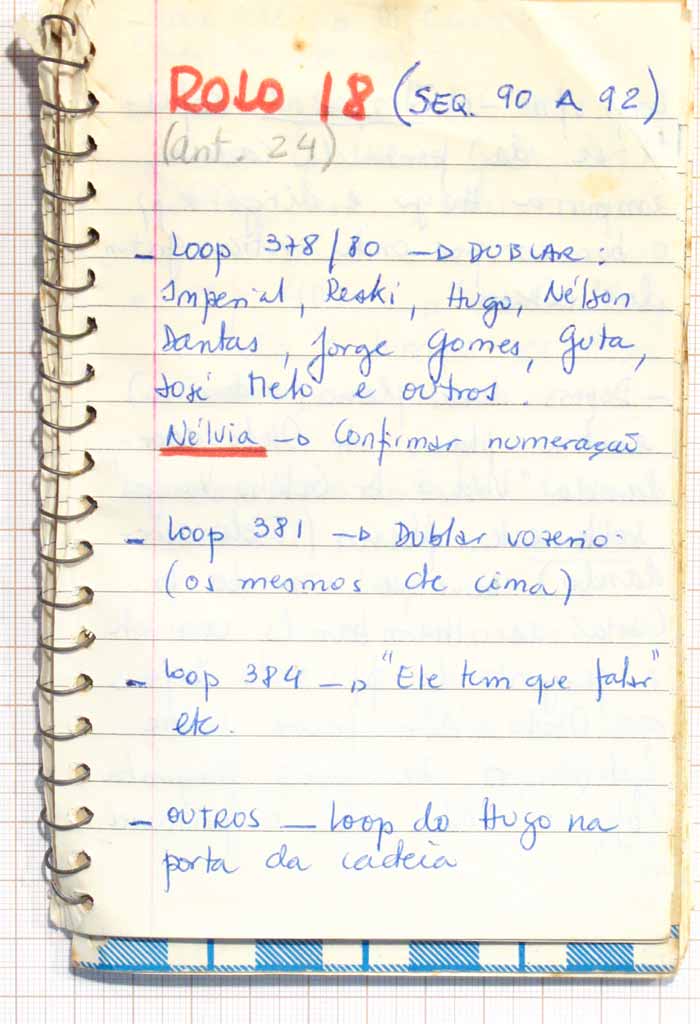 ROLO 18 (SEQ. 90 A 92)
(ant. 24)
- Loop 378/80 → DUBLAR:
Imperial, Reski, Hugo, Nélson
Dantas, Jorge Gomes, Guta,
José Melo e outros.
Nélvia → Confirmar numeração
- Loop 381 → Dublar vozerio.
(os mesmos de cima)
- Loop 384 → "Ele tem que falar"
etc.
- OUTROS - Loop do Hugo na
porta da cadeia